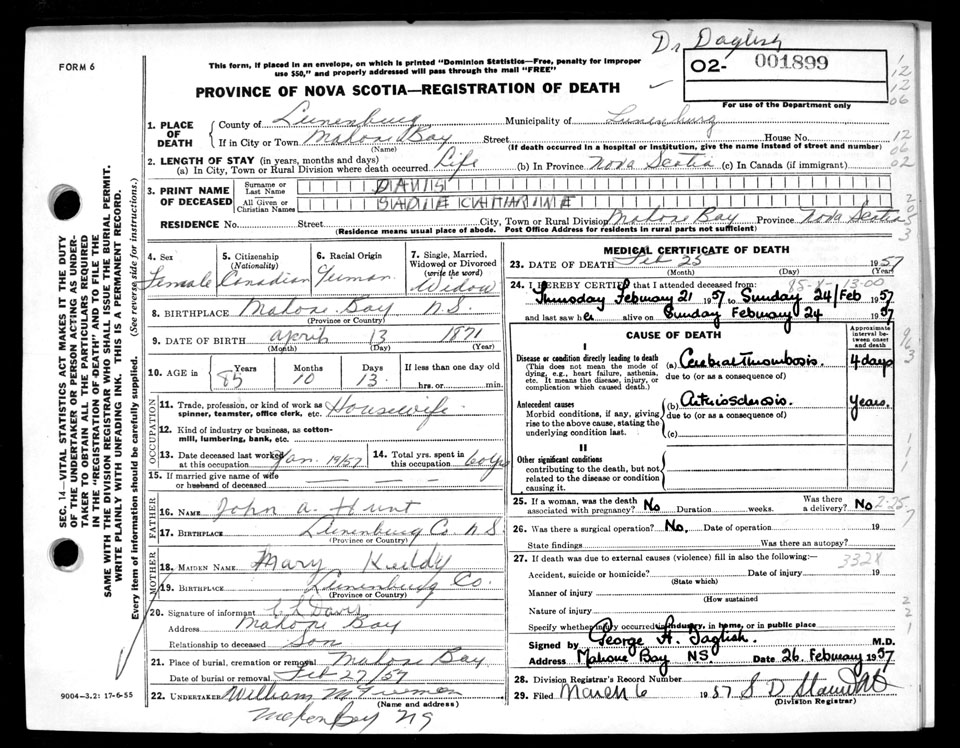 Dr Daglish
FORM 6
This form, if placed in an envelope, on which is printed "Dominion Statistics—Free, penalty for improper
use $50," and properly addressed will pass through the mail "FREE"
O2- 001899
For use of the Department only
PROVINCE OF NOVA SCOTIA—REGISTRATION OF DEATH
12
12
06
12
06
02
1. PLACE OF DEATH County of Lunenburg Municipality of Lunenburg
If in City or Town Mahone Bay Street House No.
(Name) (If death occurred in a hospital or institution, give the name instead of street and number)
2. LENGTH OF STAY (in years, months and days)
(a) In City, Town or Rural Division where death occurred Life (b) In Province Nova Scotia (c) In Canada (if immigrant)
3. PRINT NAME OF DECEASED Surname or Last Name DAVIS
All Given or Christian Names SADIE CATHARINE
RESIDENCE No. Street City, Town or Rural Division Mahone Bay Province Nova Scotia
(Residence means usual place of abode. Post Office Address for residents in rural parts not sufficient)
SEC. 14—VITAL STATISTICS ACT MAKES IT THE DUTY
OF THE UNDERTAKER OR PERSON ACTING AS UNDER-
TAKER TO OBTAIN ALL THE PARTICULARS REQUIRED
IN THE "REGISTRATION OF DEATH" AND TO FILE THE
SAME WITH THE DIVISION REGISTRAR WHO SHALL ISSUE THE BURIAL PERMIT.
WRITE PLAINLY WITH UNFADING INK. THIS IS A PERMANENT RECORD.
Every item of information should be carefully supplied. (See reverse side for instructions.)
4. Sex Female
5. Citizenship (Nationality) Canadian
6. Racial Origin
7. Single, Married, Widowed or Divorced (write the word) Widow
8. BIRTHPLACE Mahone Bay N.S.
(Province or Country)
9. DATE OF BIRTH April 13 1871
(Month) (Day) (Year)
10. AGE in Years 85 Months 10 Days 13 If less than one day old
hrs. or min.
OCCUPATION
11. Trade, profession, or kind of work as spinner, teamster, office clerk, etc. Housewife
12. Kind of industry or business, as cotton-mill, lumbering, bank, etc.
13. Date deceased last worked at this occupation Jan. 19/57 14. Total yrs. spent in this occupation 60 yrs
15. If married give name of wife or husband of deceased — — —
FATHER
16. NAME John A. Hunt
17. BIRTHPLACE Lunenburg Co. N.S.
(Province or Country)
MOTHER
18. MAIDEN NAME Mary Keddy
19. BIRTHPLACE Lunenburg Co.
(Province or Country)
20. Signature of informant C L Davis
Address Mahone Bay
Relationship to deceased Son
21. Place of burial, cremation or removal Mahone Bay
Date of burial Feb 27/57
22. UNDERTAKER William M
(Name and address)
9004—3.2: 17-6-55
MEDICAL CERTIFICATE OF DEATH
23. DATE OF DEATH Feb 25 1957
(Month) (Day) (Year)
24. I HEREBY CERTIFY that I attended deceased from:
Thursday February 21 1957 to Sunday 24/Feb 1957
and last saw her alive on Sunday February 24 1957
CAUSE OF DEATH Approximate interval between onset and death
I
Disease or condition directly leading to death (a) Cerebral Thrombosis. 4 days
(This does not mean the mode of dying, e.g., heart failure, asthenia, etc. It means the disease, injury, or complication which caused death.)
due to (or as a consequence of)
Antecedent causes (b) Arteriosclerosis. Years.
Morbid conditions, if any, giving rise to the above cause, stating the underlying condition last.
due to (or as a consequence of)
(c)
II
Other significant conditions
contributing to the death, but not related to the disease or condition causing it.
25. If a woman, was the death associated with pregnancy? No Duration weeks. Was there a delivery? No
2-25
7
26. Was there a surgical operation? No. Date of operation 19
State findings Was there an autopsy?
27. If death was due to external causes (violence) fill in also the following:—
332X
Accident, suicide or homicide? Date of injury 19
(State which)
Manner of injury
(How sustained)
Nature of injury
Specify whether injury occurred in industry, in home, or in public place
Signed by George H. Daglish. M.D.
Address Mahone Bay NS. Date 26. February 1957
28. Division Registrar's Record Number
29. Filed March 6 1957 S D
(Division Registrar)